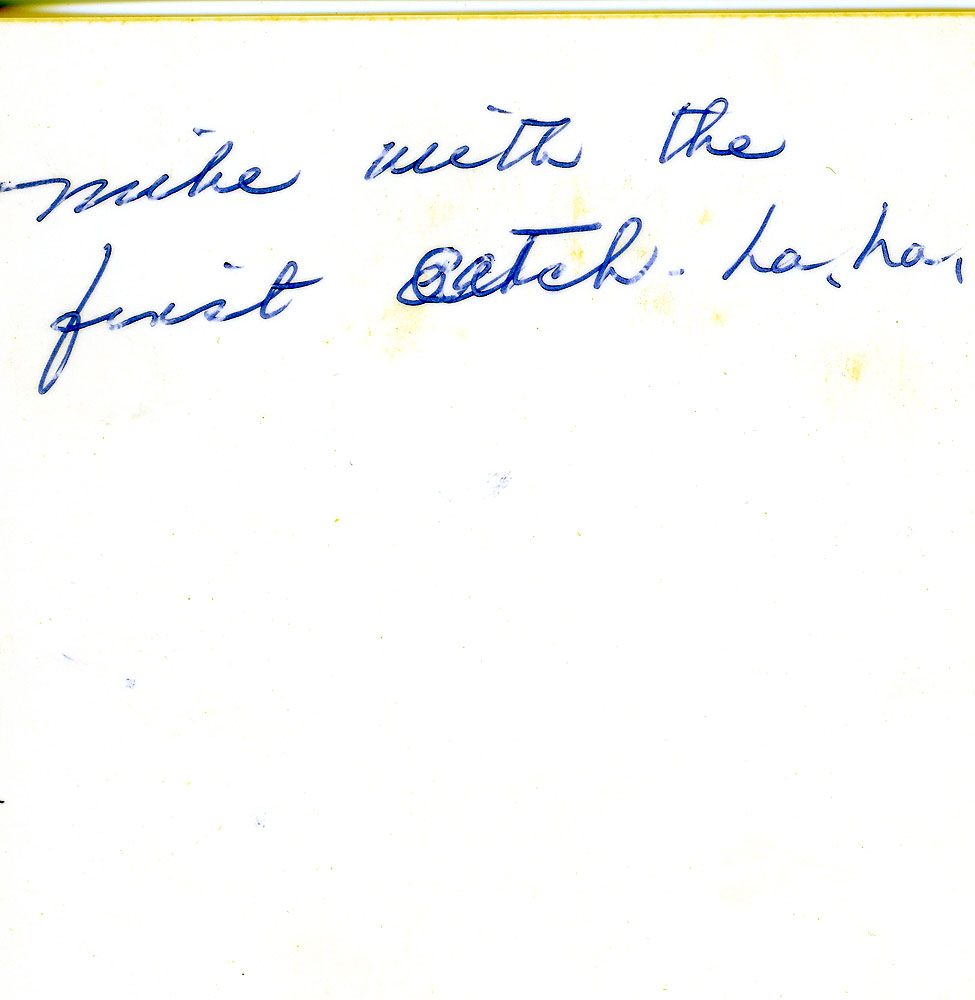 mike with the
first catch. ha, ha,